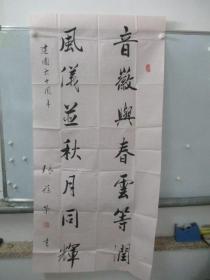 音徽與春雲等潤
風儀並秋月同輝
建國六十周年